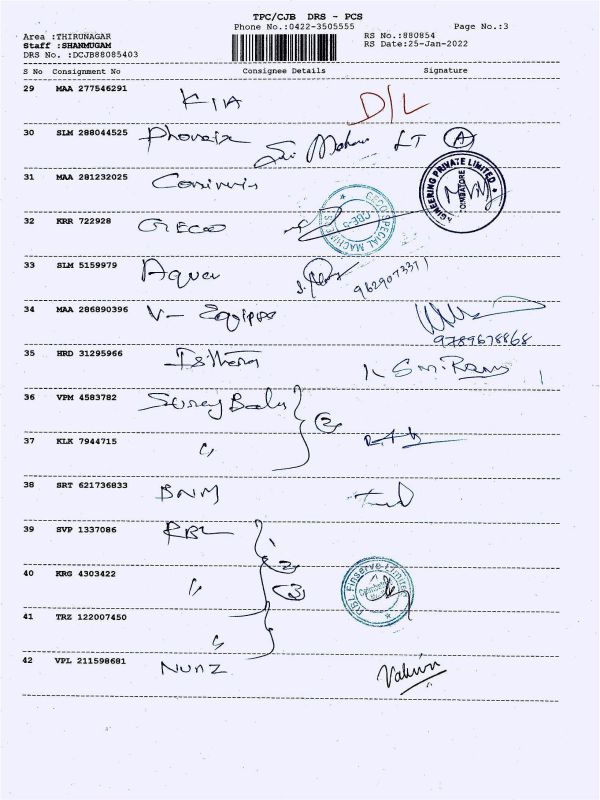 TPC/CJB DRS - PCS
Phone No.:0422-3505555 Page No.:3
Area :THIRUNAGAR RS No.:880854
Staff :SHANMUGAM RS Date:25-Jan-2022
DRS No. :DCJB88085403
S No Consignment No Consignee Details Signature
29 MAA 277546291 KIA D/L
30 SLM 288044525 Phoenix LT A
31 MAA 281232025
32 KRR 722928 GECOO
33 SLM 5159979 Aqua 9629073371
34 MAA 286890396 V- Equips
9789678868
35 HRD 31295966
36 VPM 4583782 Suray Balu 2
37 KLK 7944715 "
38 SRT 621736833 BNM
39 SVP 1337086 RBL
40 KRG 4303422 " 3
RBL Finserve Limited
41 TRZ 122007450 "
42 VPL 211598681 NUAZ
GINEERING PRIVATE LIMITED
COIMBATORE
GECO SPECIAL MACHIN
CBE-3